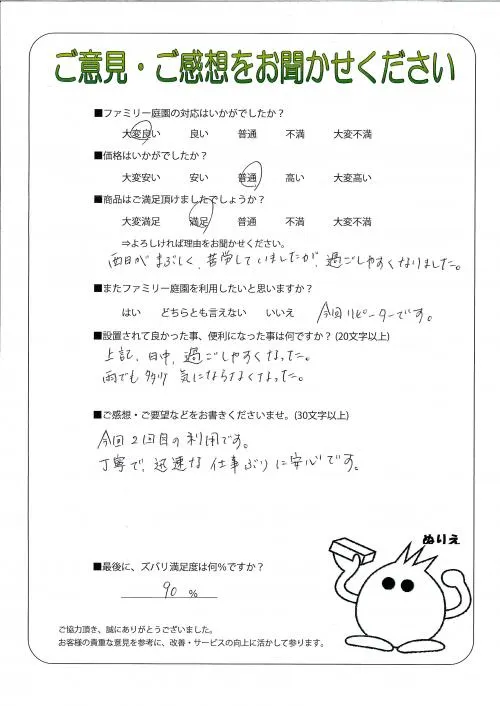 ご意見・ご感想をお聞かせください
■ファミリー庭園の対応はいかがでしたか？
大変良い 良い 普通 不満 大変不満
■価格はいかがでしたか？
大変安い 安い 普通 高い 大変高い
■商品はご満足頂けましたでしょうか？
大変満足 満足 普通 不満 大変不満
⇒よろしければ理由をお聞かせください。
西日がまぶしく、苦労していましたが、過ごしやすくなりました。
■またファミリー庭園を利用したいと思いますか？
はい どちらとも言えない いいえ 今回リピーターです。
■設置されて良かった事、便利になった事は何ですか？(20文字以上)
上記、日中、過ごしやすくなった。
雨でも多少気にならなくなった。
■ご感想・ご要望などをお書きくださいませ。(30文字以上)
今回2回目の利用です。
丁寧で、迅速な仕事ぶりに安心です。
ぬりえ
■最後に、ズバリ満足度は何％ですか？
90 %
ご協力頂き、誠にありがとうございました。
お客様の貴重な意見を参考に、改善・サービスの向上に活かして参ります。